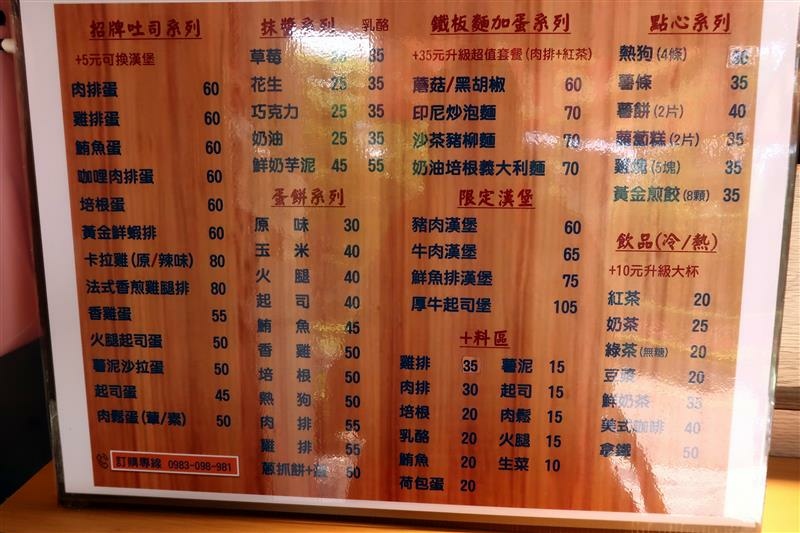 招牌吐司系列
+5元可換漢堡
肉排蛋 60
雞排蛋 60
鮪魚蛋 60
咖哩肉排蛋 60
培根蛋 60
黃金鮮蝦排 60
卡拉雞(原/辣味) 80
法式香煎雞腿排 80
香雞蛋 55
火腿起司蛋 50
薯泥沙拉蛋 50
起司蛋 45
肉鬆蛋(葷/素) 50
訂購專線 0983-098-981
抹醬系列 乳酪
草莓 25 35
花生 25 35
巧克力 25 35
奶油 25 35
鮮奶芋泥 45 55
蛋餅系列
原味 30
玉米 40
火腿 40
起司 40
鮪魚 45
香雞 50
培根 50
熱狗 50
肉排 55
雞排 55
蔥抓餅+蛋 50
鐵板麵加蛋系列
+35元升級超值套餐(肉排+紅茶)
蘑菇/黑胡椒 60
印尼炒泡麵 70
沙茶豬柳麵 70
奶油培根義大利麵 70
限定漢堡
豬肉漢堡 60
牛肉漢堡 65
鮮魚排漢堡 75
厚牛起司堡 105
+料區
雞排 35 薯泥 15
肉排 30 起司 15
培根 20 肉鬆 15
乳酪 20 火腿 15
鮪魚 20 生菜 10
荷包蛋 20
點心系列
熱狗(4條) 30
薯條 35
薯餅(2片) 40
蘿蔔糕(2片) 35
雞塊(5塊) 35
黃金煎餃(8顆) 35
飲品(冷/熱)
+10元升級大杯
紅茶 20
奶茶 25
綠茶(無糖) 20
豆漿 20
鮮奶茶 35
美式咖啡 40
拿鐵 50